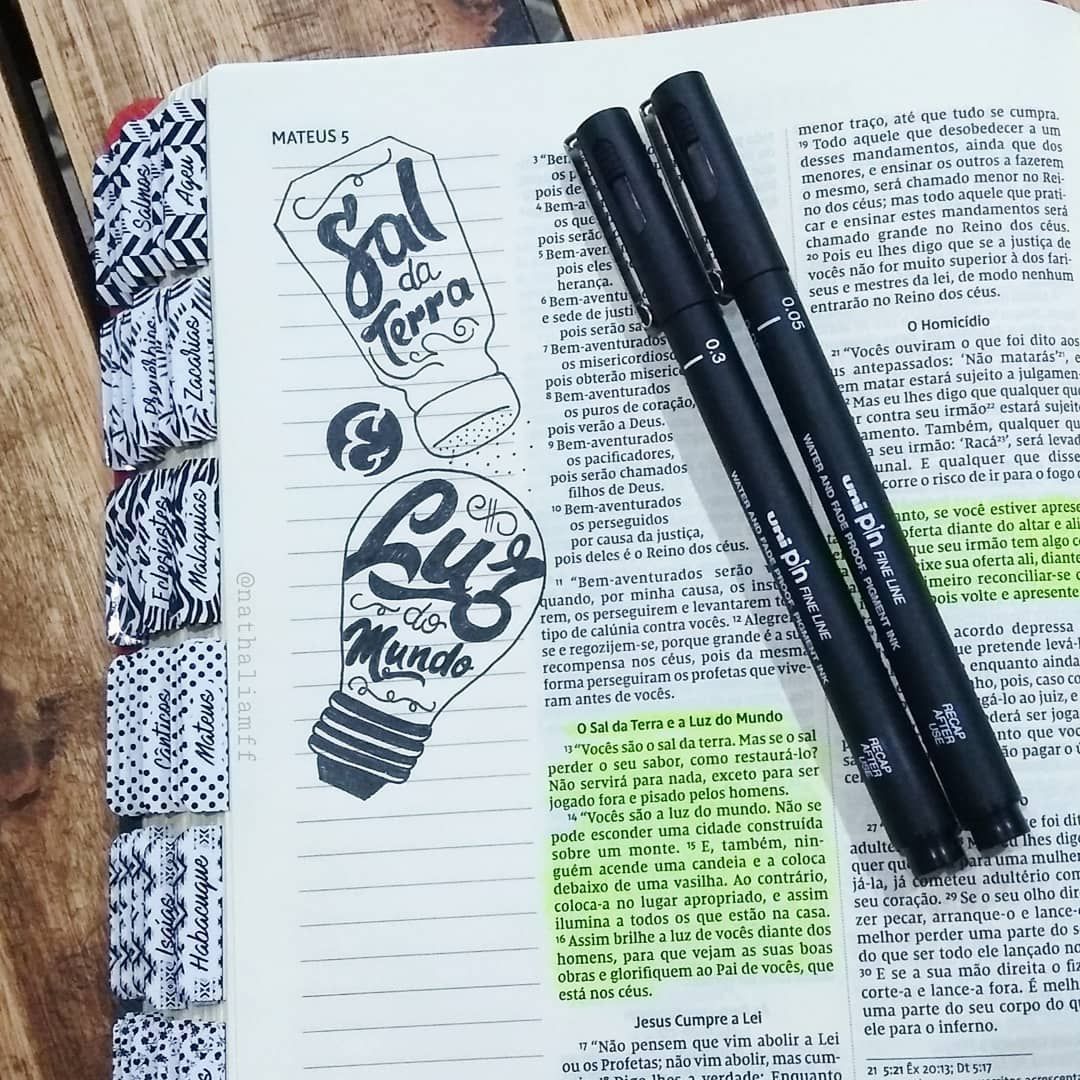 MATEUS 5
Sal
da
Terra
&
Luz
do
Mundo
@nathaliamff
Salmos
Ageu
Provérbios
Zacarias
Eclesiastes
Malaquias
Cânticos
Mateus
Isaías
Habacuque
3 “Bem
os p
pois de
4 Bem-a
os que
pois serão
5 Bem-aver
pois eles
herança.
6 Bem-aventu
e sede de justi
pois serão sa
7 Bem-aventurados
os misericordioso
pois obterão miseric
8 Bem-aventurados
os puros de coração,
pois verão a Deus.
9 Bem-aventurados
os pacificadores,
pois serão chamados
filhos de Deus.
10 Bem-aventurados
os perseguidos
por causa da justiça,
pois deles é o Reino dos céus.
11 “Bem-aventurados serão
quando, por minha causa, os insu
rem, os perseguirem e levantarem
tipo de calúnia contra vocês. 12 Alegre
se e regozijem-se, porque grande é a su
recompensa nos céus, pois da mesma
forma perseguiram os profetas que vive-
ram antes de vocês.
O Sal da Terra e a Luz do Mundo
13 “Vocês são o sal da terra. Mas se o sal
perder o seu sabor, como restaurá-lo?
Não servirá para nada, exceto para ser
jogado fora e pisado pelos homens.
14 “Vocês são a luz do mundo. Não se
pode esconder uma cidade construída
sobre um monte. 15 E, também, nin-
guém acende uma candeia e a coloca
debaixo de uma vasilha. Ao contrário,
coloca-a no lugar apropriado, e assim
ilumina a todos os que estão na casa.
16 Assim brilhe a luz de vocês diante dos
homens, para que vejam as suas boas
obras e glorifiquem ao Pai de vocês, que
está nos céus.
Jesus Cumpre a Lei
17 “Não pensem que vim abolir a Lei
ou os Profetas; não vim abolir, mas cum-
18 Digo lhes a verdade: Enquanto
menor traço, até que tudo se cumpra.
19 Todo aquele que desobedecer a um
desses mandamentos, ainda que dos
menores, e ensinar os outros a fazerem
o mesmo, será chamado menor no Rei-
no dos céus; mas todo aquele que prati-
car e ensinar estes mandamentos será
chamado grande no Reino dos céus.
20 Pois eu lhes digo que se a justiça de
vocês não for muito superior à dos fari-
seus e mestres da lei, de modo nenhum
entrarão no Reino dos céus.
O Homicídio
21 “Vocês ouviram o que foi dito aos
us antepassados: ‘Não matarás’21, e
em matar estará sujeito a julgamen-
Mas eu lhes digo que qualquer que
r contra seu irmão22 estará sujeito
amento. Também, qualquer qu
a seu irmão: ‘Racá23’, será levad
unal. E qualquer que disse
corre o risco de ir para o fogo
anto, se você estiver aprese
oferta diante do altar e ali
que seu irmão tem algo c
eixe sua oferta ali, diante
imeiro reconciliar-se
pois volte e apresente
acordo depressa
ue pretende levá-l
enquanto ainda
ho, pois, caso co
gá-lo ao juiz, e
derá ser joga
nto que voc
ão pagar o u
27 e foi dit
adulté lhes dig
quer qu para uma mulher
já-la, já cometeu adultério com
seu coração. 29 Se o seu olho dir
zer pecar, arranque-o e lance-
melhor perder uma parte do s
do que ser todo ele lançado no
30 E se a sua mão direita o fiz
corte-a e lance-a fora. É melh
uma parte do seu corpo do qu
ele para o inferno.
21 5:21 Êx 20:13; Dt 5:17
0.3
WATER AND FADE PROOF, PIGMENT INK
uni pin FINE LINE
RECAP AFTER USE
0.05
WATER AND FADE PROOF, PIGMENT INK
uni pin FINE LINE
RECAP AFTER USE